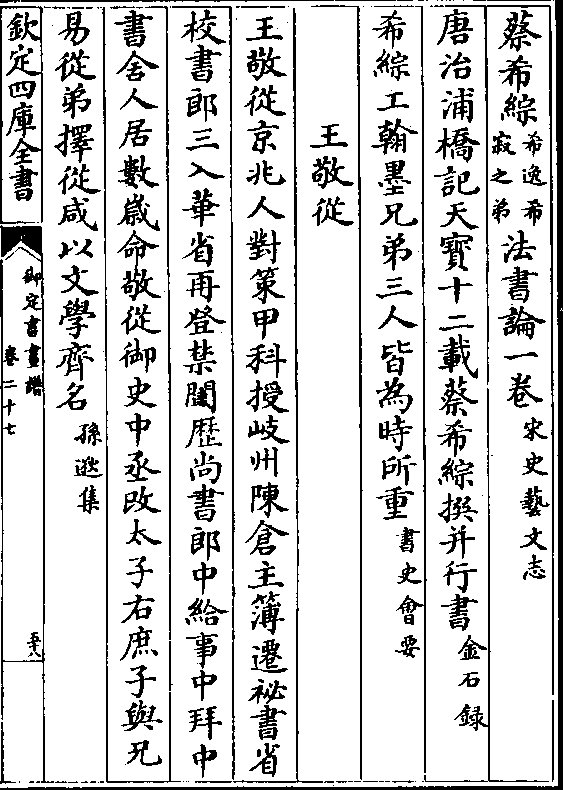 蔡希綜希逸希寂之弟法書論一卷宋史藝文志
唐治浦橋記天寶十二載蔡希綜撰并行書金石録
希綜工翰墨兄弟三人皆為時所重書史會要
王敬從
王敬從京兆人對策甲科授岐州陳倉主簿遷祕書省
校書郎三入華省再登禁闈歴尚書郎中給事中拜中
書舍人居數嵗命敬從御史中丞改太子右庶子與兄
易從弟擇從咸以文學齊名孫逖集
欽定四庫全書
御定書畫譜
卷二十七
五十八